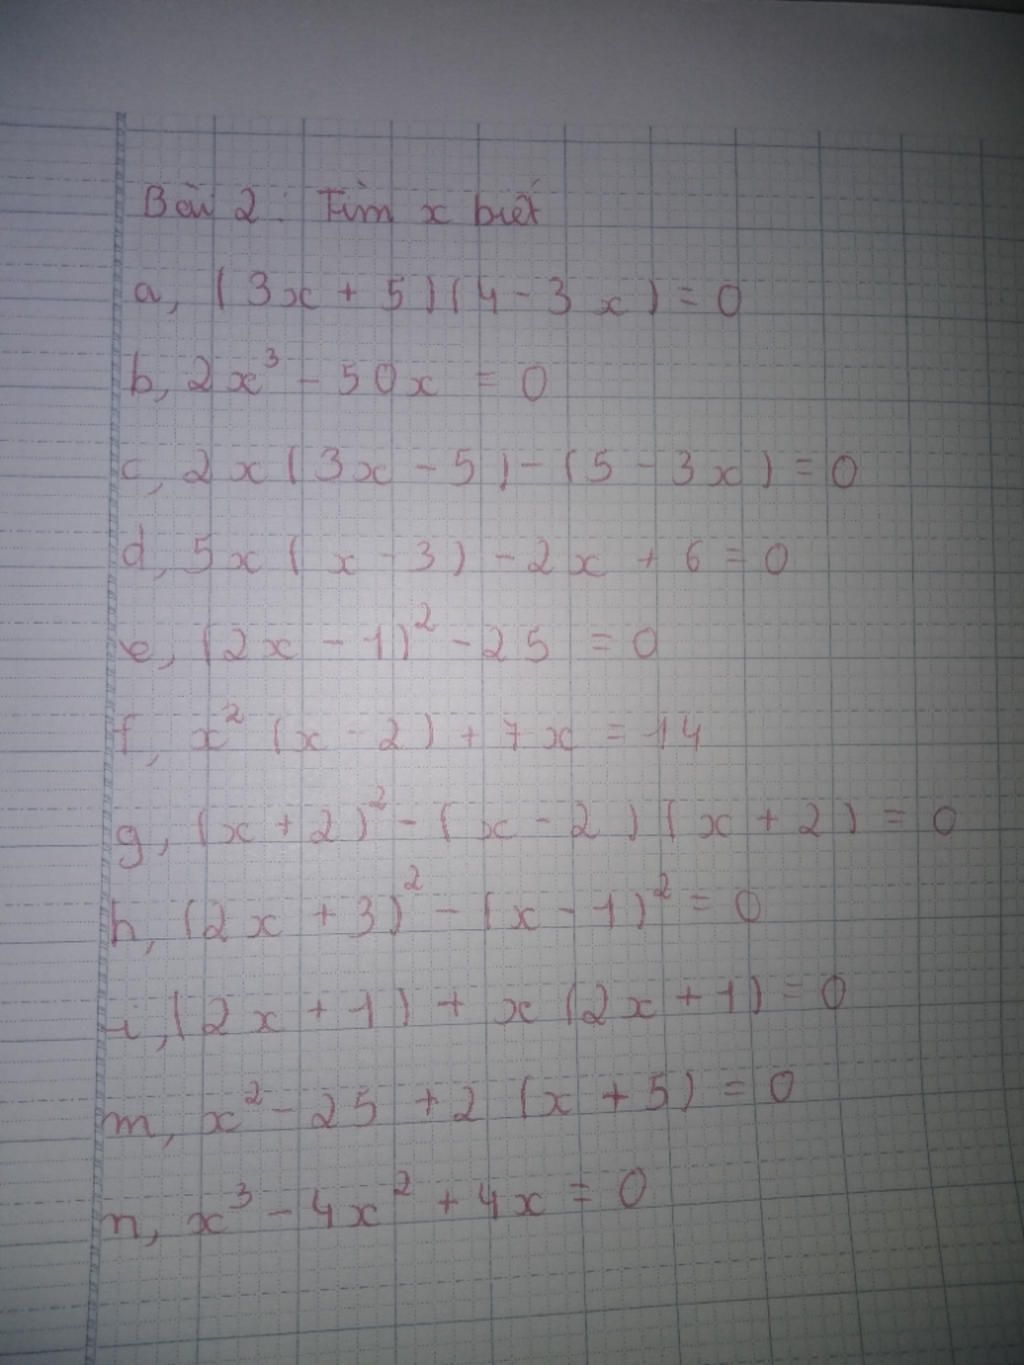 Bài 2 : Tìm x biết
a, (3x + 5)(4 - 3x) = 0
b, 2x³ - 50x = 0
c, 2x(3x - 5) - (5 - 3x) = 0
d, 5x(x - 3) - 2x + 6 = 0
e, (2x - 1)² - 25 = 0
f, x²(x - 2) + 7x = 14
g, (x + 2)² - (x - 2)(x + 2) = 0
h, (2x + 3)² - (x - 1)² = 0
i, (2x + 1) + x(2x + 1) = 0
m, x² - 25 + 2(x + 5) = 0
n, x³ - 4x² + 4x = 0